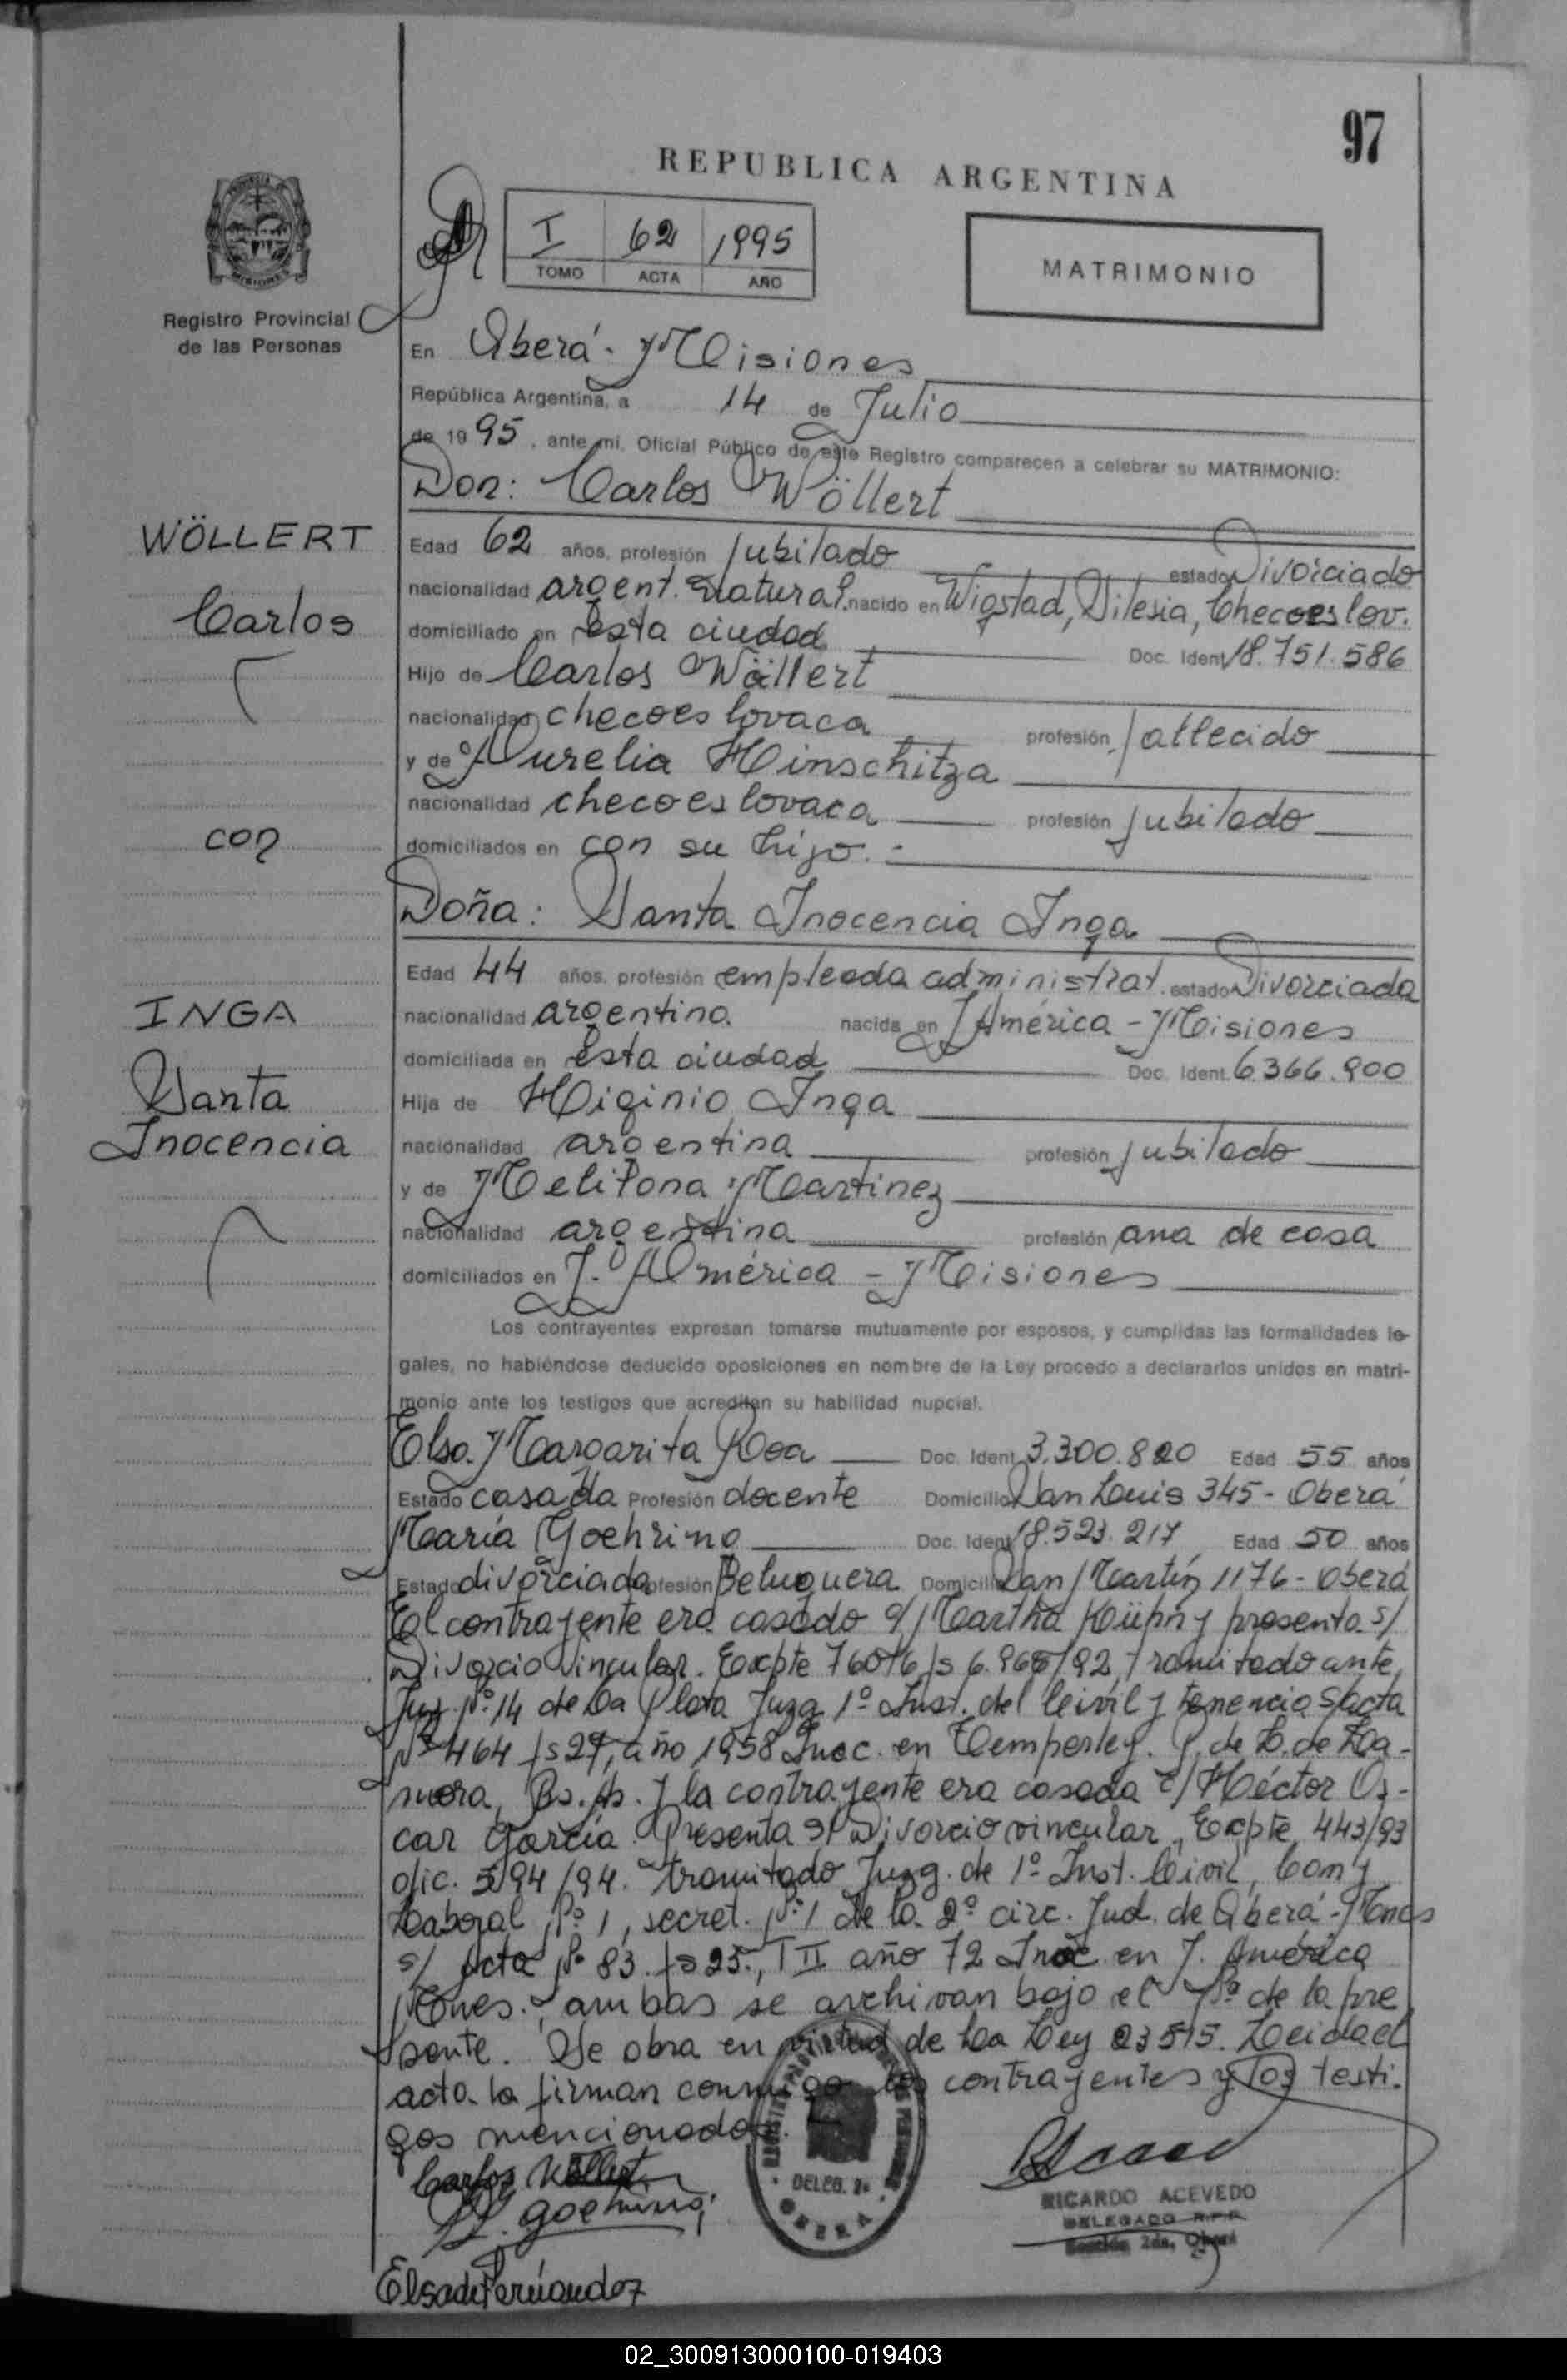 97
REPUBLICA ARGENTINA
I 62 1995
TOMO ACTA AÑO
MATRIMONIO
Registro Provincial
de las Personas
En Oberá - Misiones
República Argentina, a 14 de Julio
de 1995, ante mí, Oficial Público de este Registro comparecen a celebrar su MATRIMONIO:
Don: Carlos Wöllert
WÖLLERT
Carlos
Edad 62 años, profesión jubilado estado Divorciado
nacionalidad argent. Natural. nacido en Wigstad, Silesia, Checoeslov.
domiciliado en Esta ciudad Doc. Ident 18.751.586
Hijo de Carlos Wöllert
nacionalidad checoeslovaca profesión fallecido
y de Aurelia Hinschitza
nacionalidad checoeslovaca profesión jubilado
domiciliados en con su hijo.-
con
Doña: Santa Inocencia Inga
INGA
Santa
Inocencia
Edad 44 años, profesión empleada administrat. estado Divorciada
nacionalidad argentina nacida en J. América - Misiones
domiciliada en Esta ciudad Doc. Ident. 6.366.900
Hija de Higinio Inga
nacionalidad argentina profesión jubilado
y de Melitona Martinez
nacionalidad argentina profesión ama de casa
domiciliados en J. América - Misiones
Los contrayentes expresan tomarse mutuamente por esposos, y cumplidas las formalidades le-
gales, no habiéndose deducido oposiciones en nombre de la Ley procedo a declararlos unidos en matri-
monio ante los testigos que acreditan su habilidad nupcial.
Elsa Margarita Roa Doc. Ident 3.300.820 Edad 55 años
Estado casada Profesión docente Domicilio San Louis 345 - Oberá
María Goehring Doc. Ident 18.523.217 Edad 50 años
Estado divorciada Profesión Peluquera Domicilio San Martín 1176 - Oberá
El contrayente era casado c/ Martha y presenta s/
Divorcio Vincular. Expte 76076 fs 6.968/92, Tramitado ante
Juz. Nº 14 de La Plata Juzg. 1º Inst. del Civil y s/acta
Nº 464 fs 27, año 1958 Insc. en Temperley. P. de L. de Za-
mora, Bs. As. y la contrayente era casada c/ Héctor Os-
car García. Presenta s/ Divorcio vincular, Expte 443/93
ofic. 594/94. tramitado Juzg. de 1º Inst. Civil, Com y
Laboral Nº 1, secret. Nº 1 de la 2º circ. Jud. de Oberá - Mnes
s/ Acta Nº 83 fs 25, T II año 72 Insc en J. América
Mnes., ambas se archivan bajo el Nº de la pre
sente. Se obra en virtud de La Ley 23515. Leida el
acta la firman conmigo los contrayentes y los testi-
gos mencionados.
Carlos Wöllert
M. Goehring
Elsa de Fernández
DELEG. 2a
OBERA
RICARDO ACEVEDO
DELEGADO R.P.P.
Sección 2da, Oberá
02_300913000100-019403